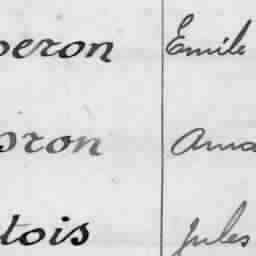 peron Emile
pron Ama
tois Jules